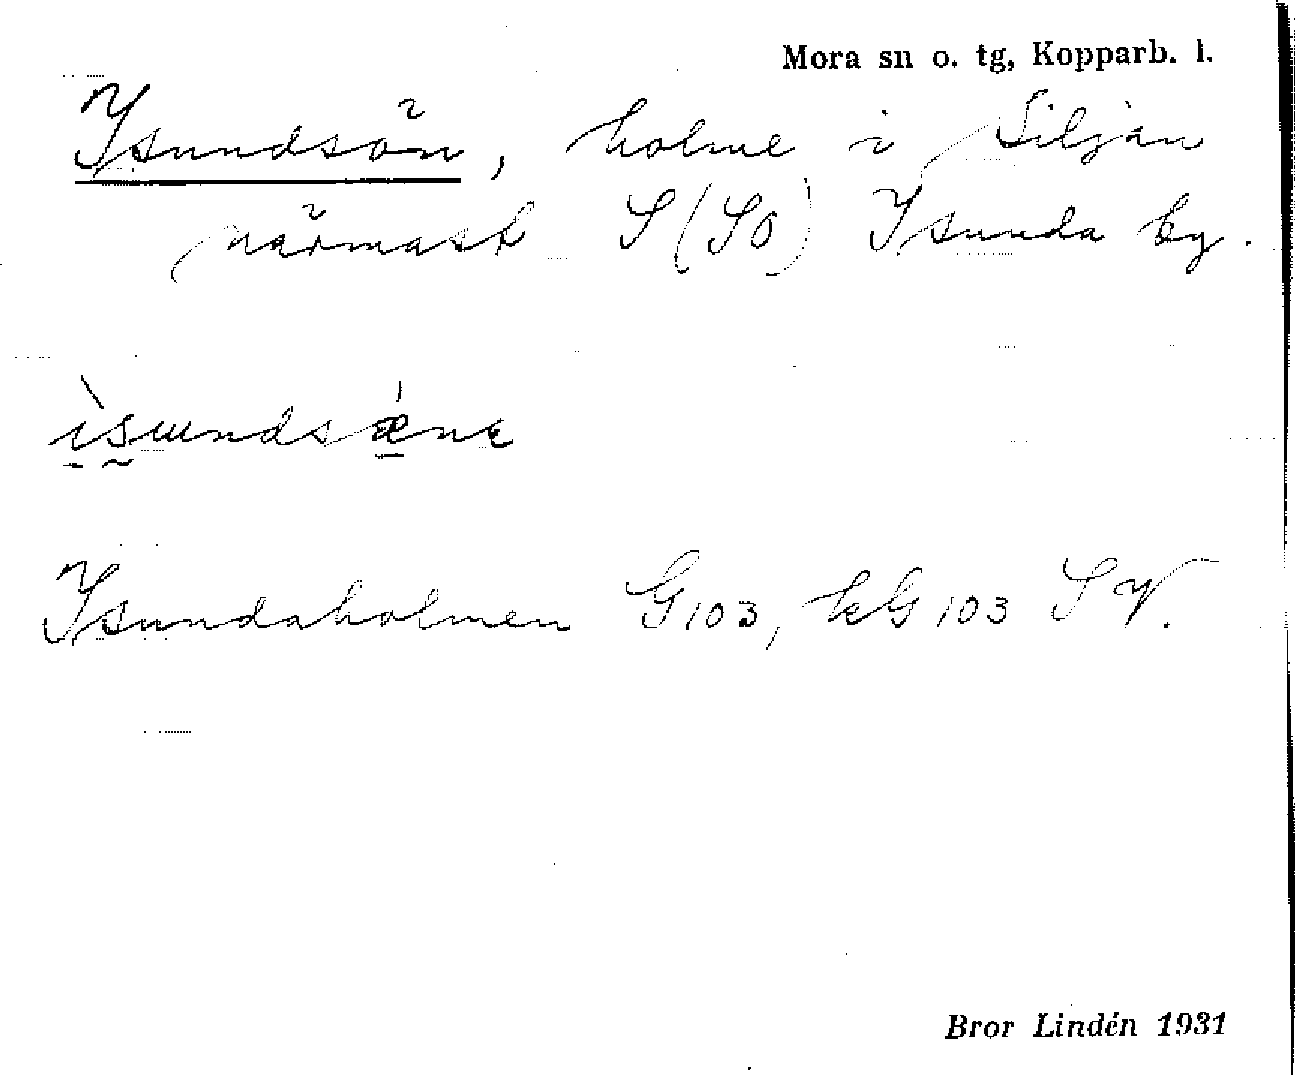 Mora sn o. tg, Kopparb. l.
Isundsön, holme i Siljan
närmast S (SO) Isunda by.
ìsundsǽnɛ
Isundaholmen G103, kG103 SV.
Bror Lindén 1931